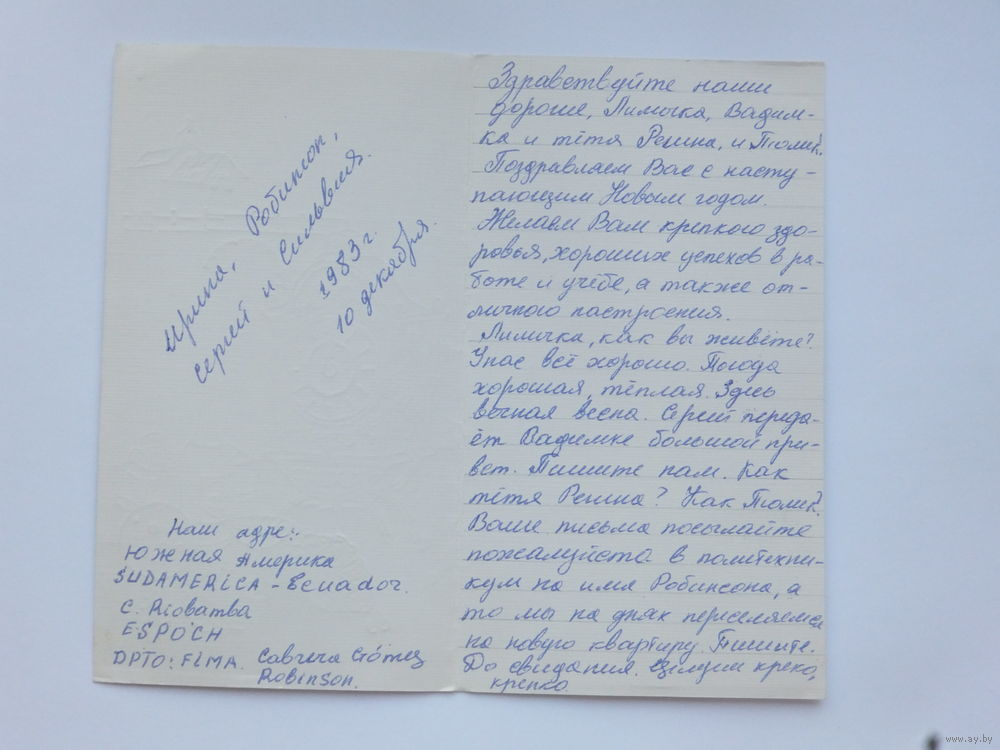 Ирина, Робинсон,
Сергей и Сильвия.
1983 г.
10 декабря.
Наш адрес:
Южная Америка
SUDAMERICA - Ecuador.
C. Riobamba
ESPOCH
DPTO: FIMA. Gómez
Robinson.
Здравствуйте наши
дорогие, Лимочка, Вадим-
ка и тётя Регина, и Толик!
Поздравляем Вас с насту-
пающим Новым годом.
Желаем Вам крепкого здо-
ровья, хороших успехов в ра-
боте и учёбе, а также от-
личного настроения.
Лимочка, как вы живёте?
У нас всё хорошо. Погода
хорошая, тёплая. Здесь
вечная весна. Сергей переда-
ёт Вадимке большой при-
вет. Пишите нам. Как
тётя Регина? Как Толик?
Ваше письма посылайте
пожалуйста в политехни-
кум на имя Робинсона, а
то мы на днях переселяемся
на новую квартиру. Пишите.
До свидания. Целуем крепко,
крепко
www.ay.by